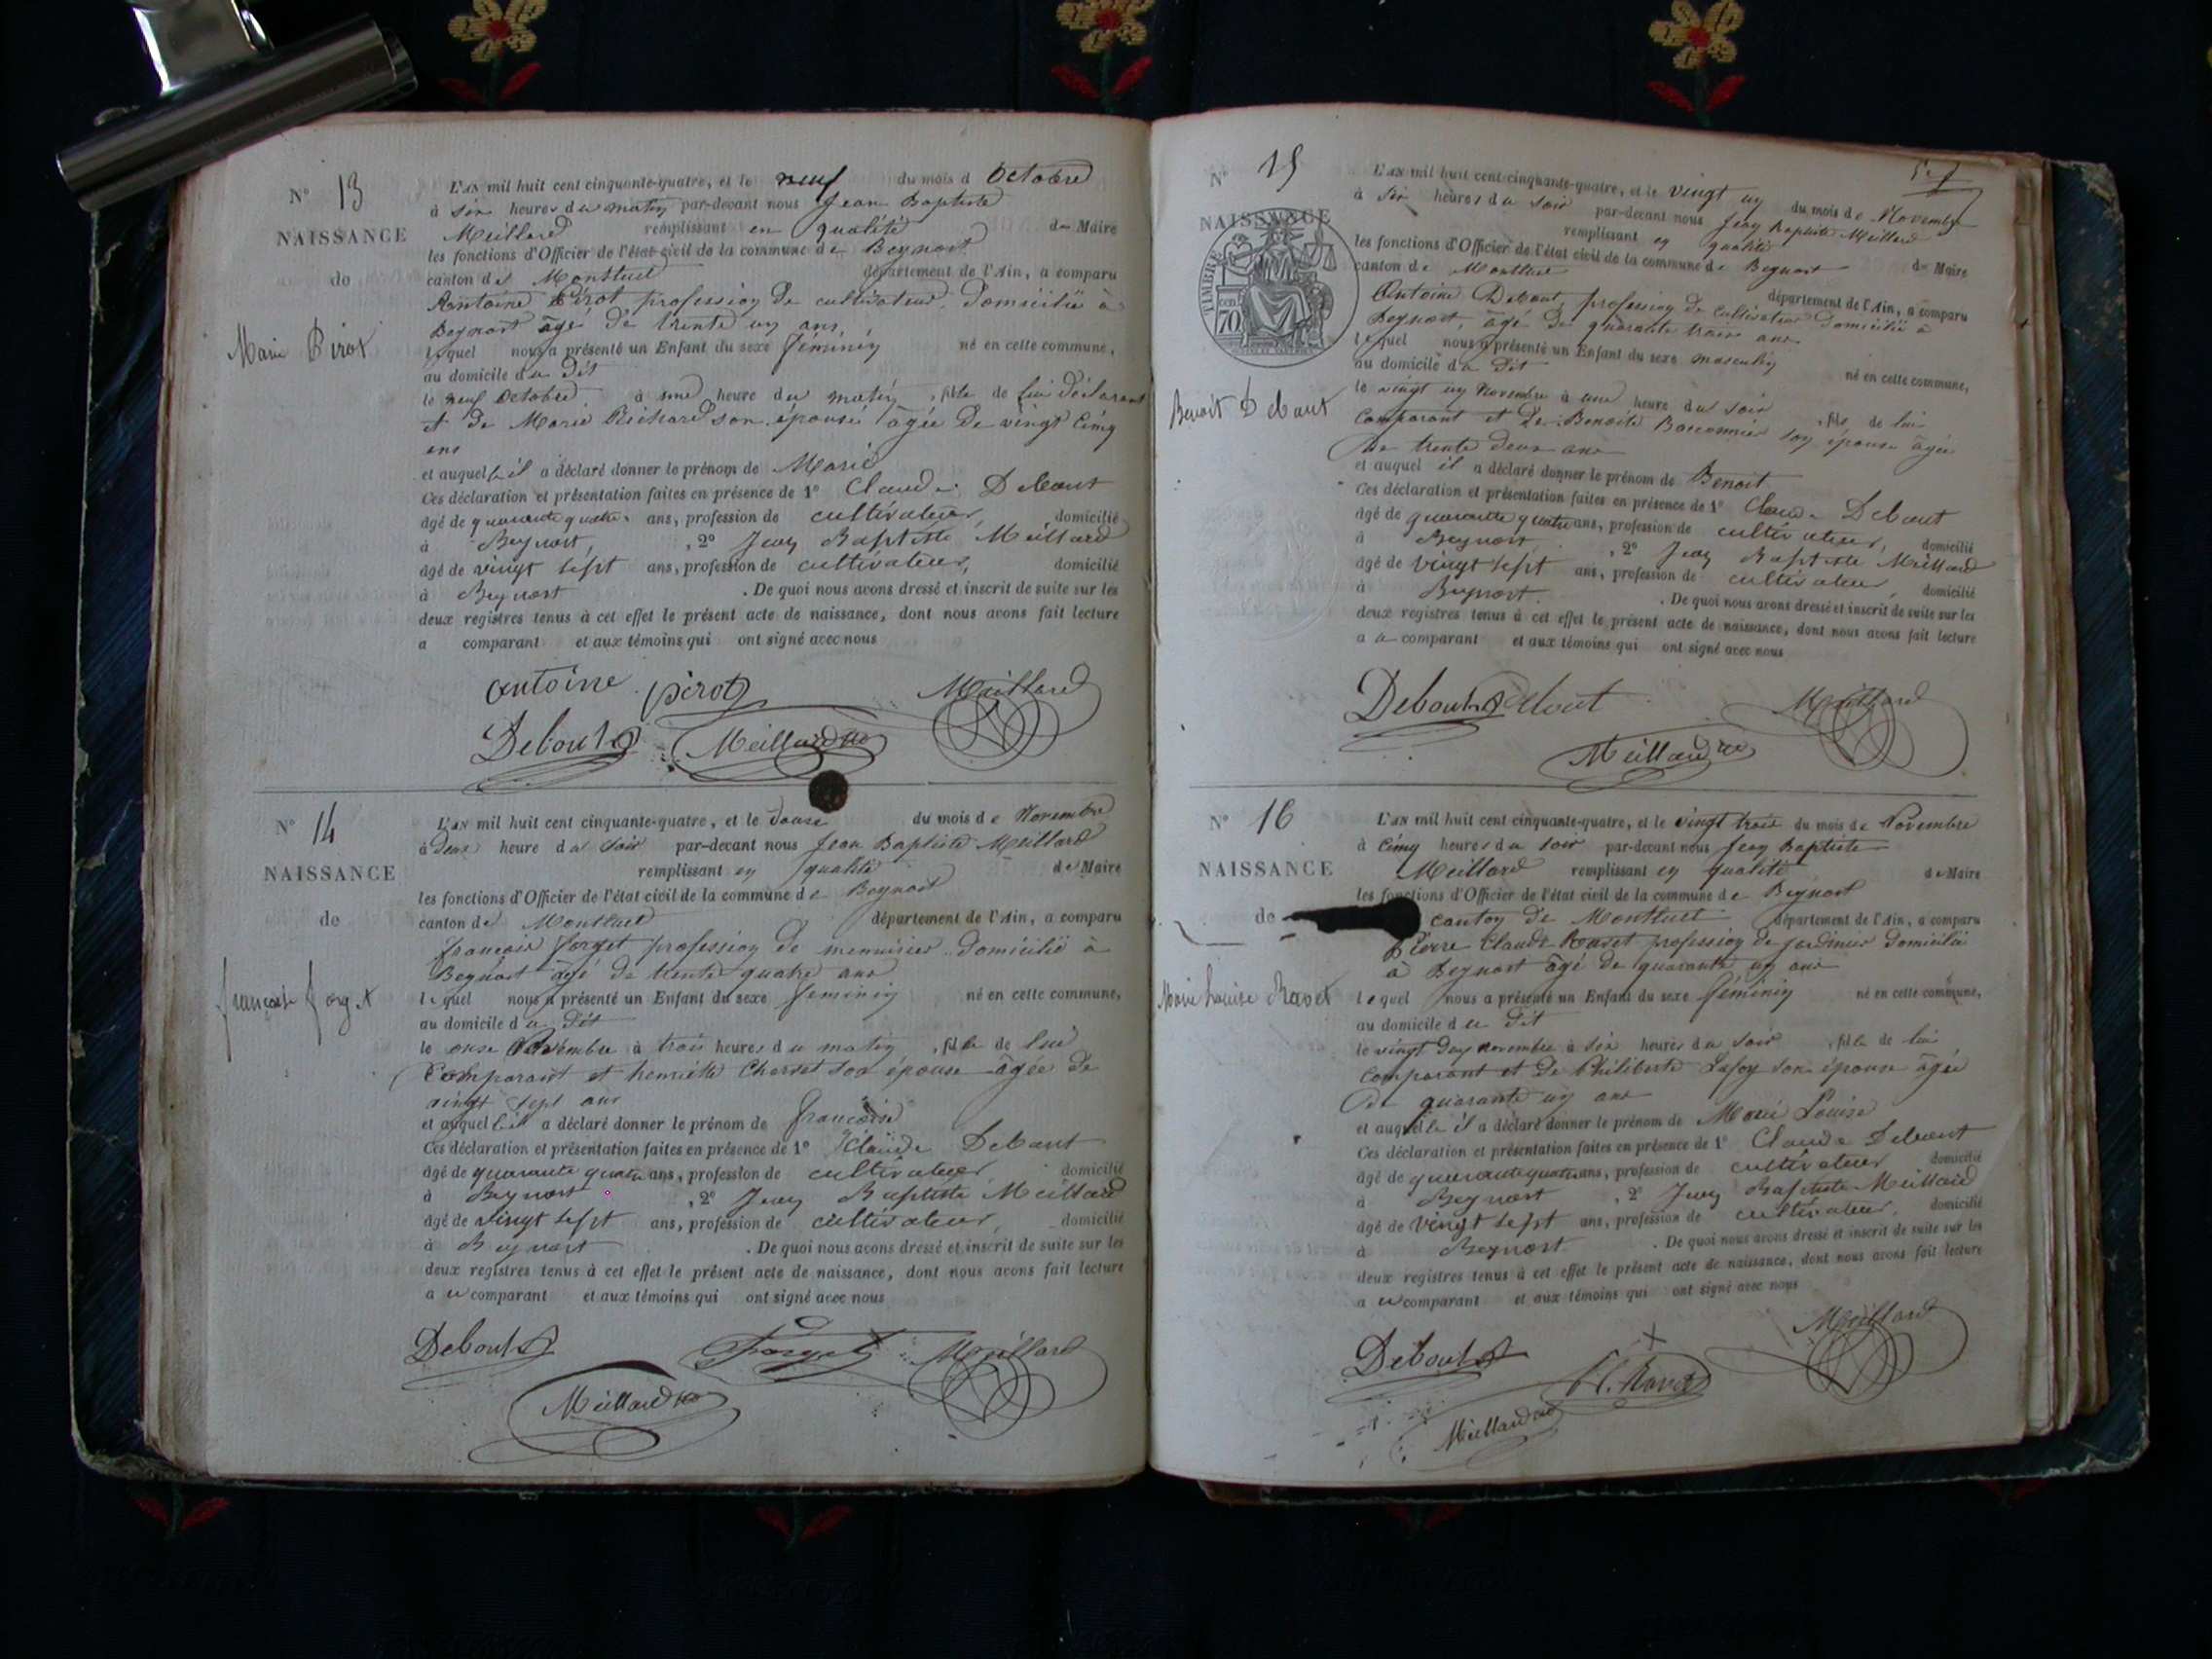 N° 13
NAISSANCE
de
Marie Pirot
L'AN mil huit cent cinquante-quatre, et le neuf du mois d Octobre
à six heures du matin par-devant nous Jean Baptiste
Meillard remplissant en qualité de Maire
les fonctions d'Officier de l'état civil de la commune de Beynost
canton de Montluel département de l'Ain, a comparu
Antoine Pirot profession de cultivateur domicilié à
Beynost âgé de trente un ans,
lequel nous a présenté un Enfant du sexe féminin né en cette commune,
au domicile du dit
le neuf Octobre à une heure du matin, fille de lui déclarant
et de Marie Richard son épouse âgée de vingt cinq
ans
et auquelle il a déclaré donner le prénom de Marie
Ces déclaration et présentation faites en présence de 1° Claude Debout
âgé de quarante quatre ans, profession de cultivateur, domicilié
à Beynost, 2° Jean Baptiste Meillard
âgé de vingt sept ans, profession de cultivateur, domicilié
à Beynost . De quoi nous avons dressé et inscrit de suite sur les
deux registres tenus à cet effet le présent acte de naissance, dont nous avons fait lecture
a comparant et aux témoins qui ont signé avec nous
antoine pirot Meillard
Debout Meillard
N° 14
NAISSANCE
de
françoise forget
L'AN mil huit cent cinquante-quatre, et le douze du mois de Novembre
à deux heure du soir par-devant nous Jean Baptiste Meillard
remplissant en qualité de Maire
les fonctions d'Officier de l'état civil de la commune de Beynost
canton de Montluel département de l'Ain, a comparu
françois forget profession de menuisier domicilié à
Beynost âgé de trente quatre ans
lequel nous a présenté un Enfant du sexe féminin né en cette commune,
au domicile du dit
le onze Novembre à trois heures du matin, fille de lui
Comparant et henriette son épouse âgée de
vingt sept ans
et auquel il a déclaré donner le prénom de françoise
Ces déclaration et présentation faites en présence de 1° Claude Debout
âgé de quarante quatre ans, profession de cultivateur domicilié
à Beynost , 2° Jean Baptiste Meillard
âgé de vingt sept ans, profession de cultivateur, domicilié
à Beynost . De quoi nous avons dressé et inscrit de suite sur les
deux registres tenus à cet effet le présent acte de naissance, dont nous avons fait lecture
a u comparant et aux témoins qui ont signé avec nous
Debout Forget Meillard
Meillard
N° 15
NAISSANCE
TIMBRE
70
Benoit Debout
L'AN mil huit cent cinquante-quatre, et le vingt un du mois de Novembre
à six heures du soir par-devant nous Jean Baptiste Meillard
remplissant en qualité de Maire
les fonctions d'Officier de l'état civil de la commune de Beynost
canton de Montluel département de l'Ain, a comparu
Antoine Debout, profession de cultivateur domicilié à
Beynost, âgé de quarante trois ans
lequel nous a présenté un Enfant du sexe masculin né en cette commune,
au domicile du dit
le vingt un Novembre à une heure du soir, fils de lui
Comparant et de Benoite son épouse âgée
de trente deux ans
et auquel il a déclaré donner le prénom de Benoit
Ces déclaration et présentation faites en présence de 1° Claude Debout
âgé de quarante quatre ans, profession de cultivateur, domicilié
à Beynost , 2° Jean Baptiste Meillard
âgé de vingt sept ans, profession de cultivateur, domicilié
à Beynost . De quoi nous avons dressé et inscrit de suite sur les
deux registres tenus à cet effet le présent acte de naissance, dont nous avons fait lecture
a u comparant et aux témoins qui ont signé avec nous
Debout debout Meillard
Meillard
N° 16
NAISSANCE
de
Marie Louise Ravet
L'AN mil huit cent cinquante-quatre, et le vingt trois du mois de Novembre
à cinq heures du soir par-devant nous Jean Baptiste
Meillard remplissant en qualité de Maire
les fonctions d'Officier de l'état civil de la commune de Beynost
canton de Montluel département de l'Ain, a comparu
Pierre Claude Ravet profession de jardinier domicilié
à Beynost âgé de quarante un ans
lequel nous a présenté un Enfant du sexe féminin né en cette commune,
au domicile du dit
le vingt deux novembre à six heures du soir, fille de lui
Comparant et de Philiberte son épouse âgée
de quarante un ans
et auquelle il a déclaré donner le prénom de Marie Louise
Ces déclaration et présentation faites en présence de 1° Claude Debout
âgé de quarante quatre ans, profession de cultivateur domicilié
à Beynost , 2° Jean Baptiste Meillard
âgé de vingt sept ans, profession de cultivateur, domicilié
à Beynost . De quoi nous avons dressé et inscrit de suite sur les
deux registres tenus à cet effet le présent acte de naissance, dont nous avons fait lecture
a u comparant et aux témoins qui ont signé avec nous
Debout Ravet Meillard
Meillard